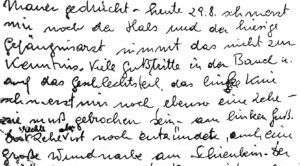 Mauer gedrückt - heute 29.8. schmerzt
mir noch der Hals und der hiesige
Gefängnisarzt nimmt das nicht zur
Kenntnis. Viele Fußtritte in den Bauch u.
auf das Geschlechtsteil, das linke Knie
schmerzt mir noch, ebenso eine Zehe -
sie muß gebrochen sein - am linken Fuß.
rechte
noch entzündet, auch eine
große Wundnarbe am Schienbein. Der